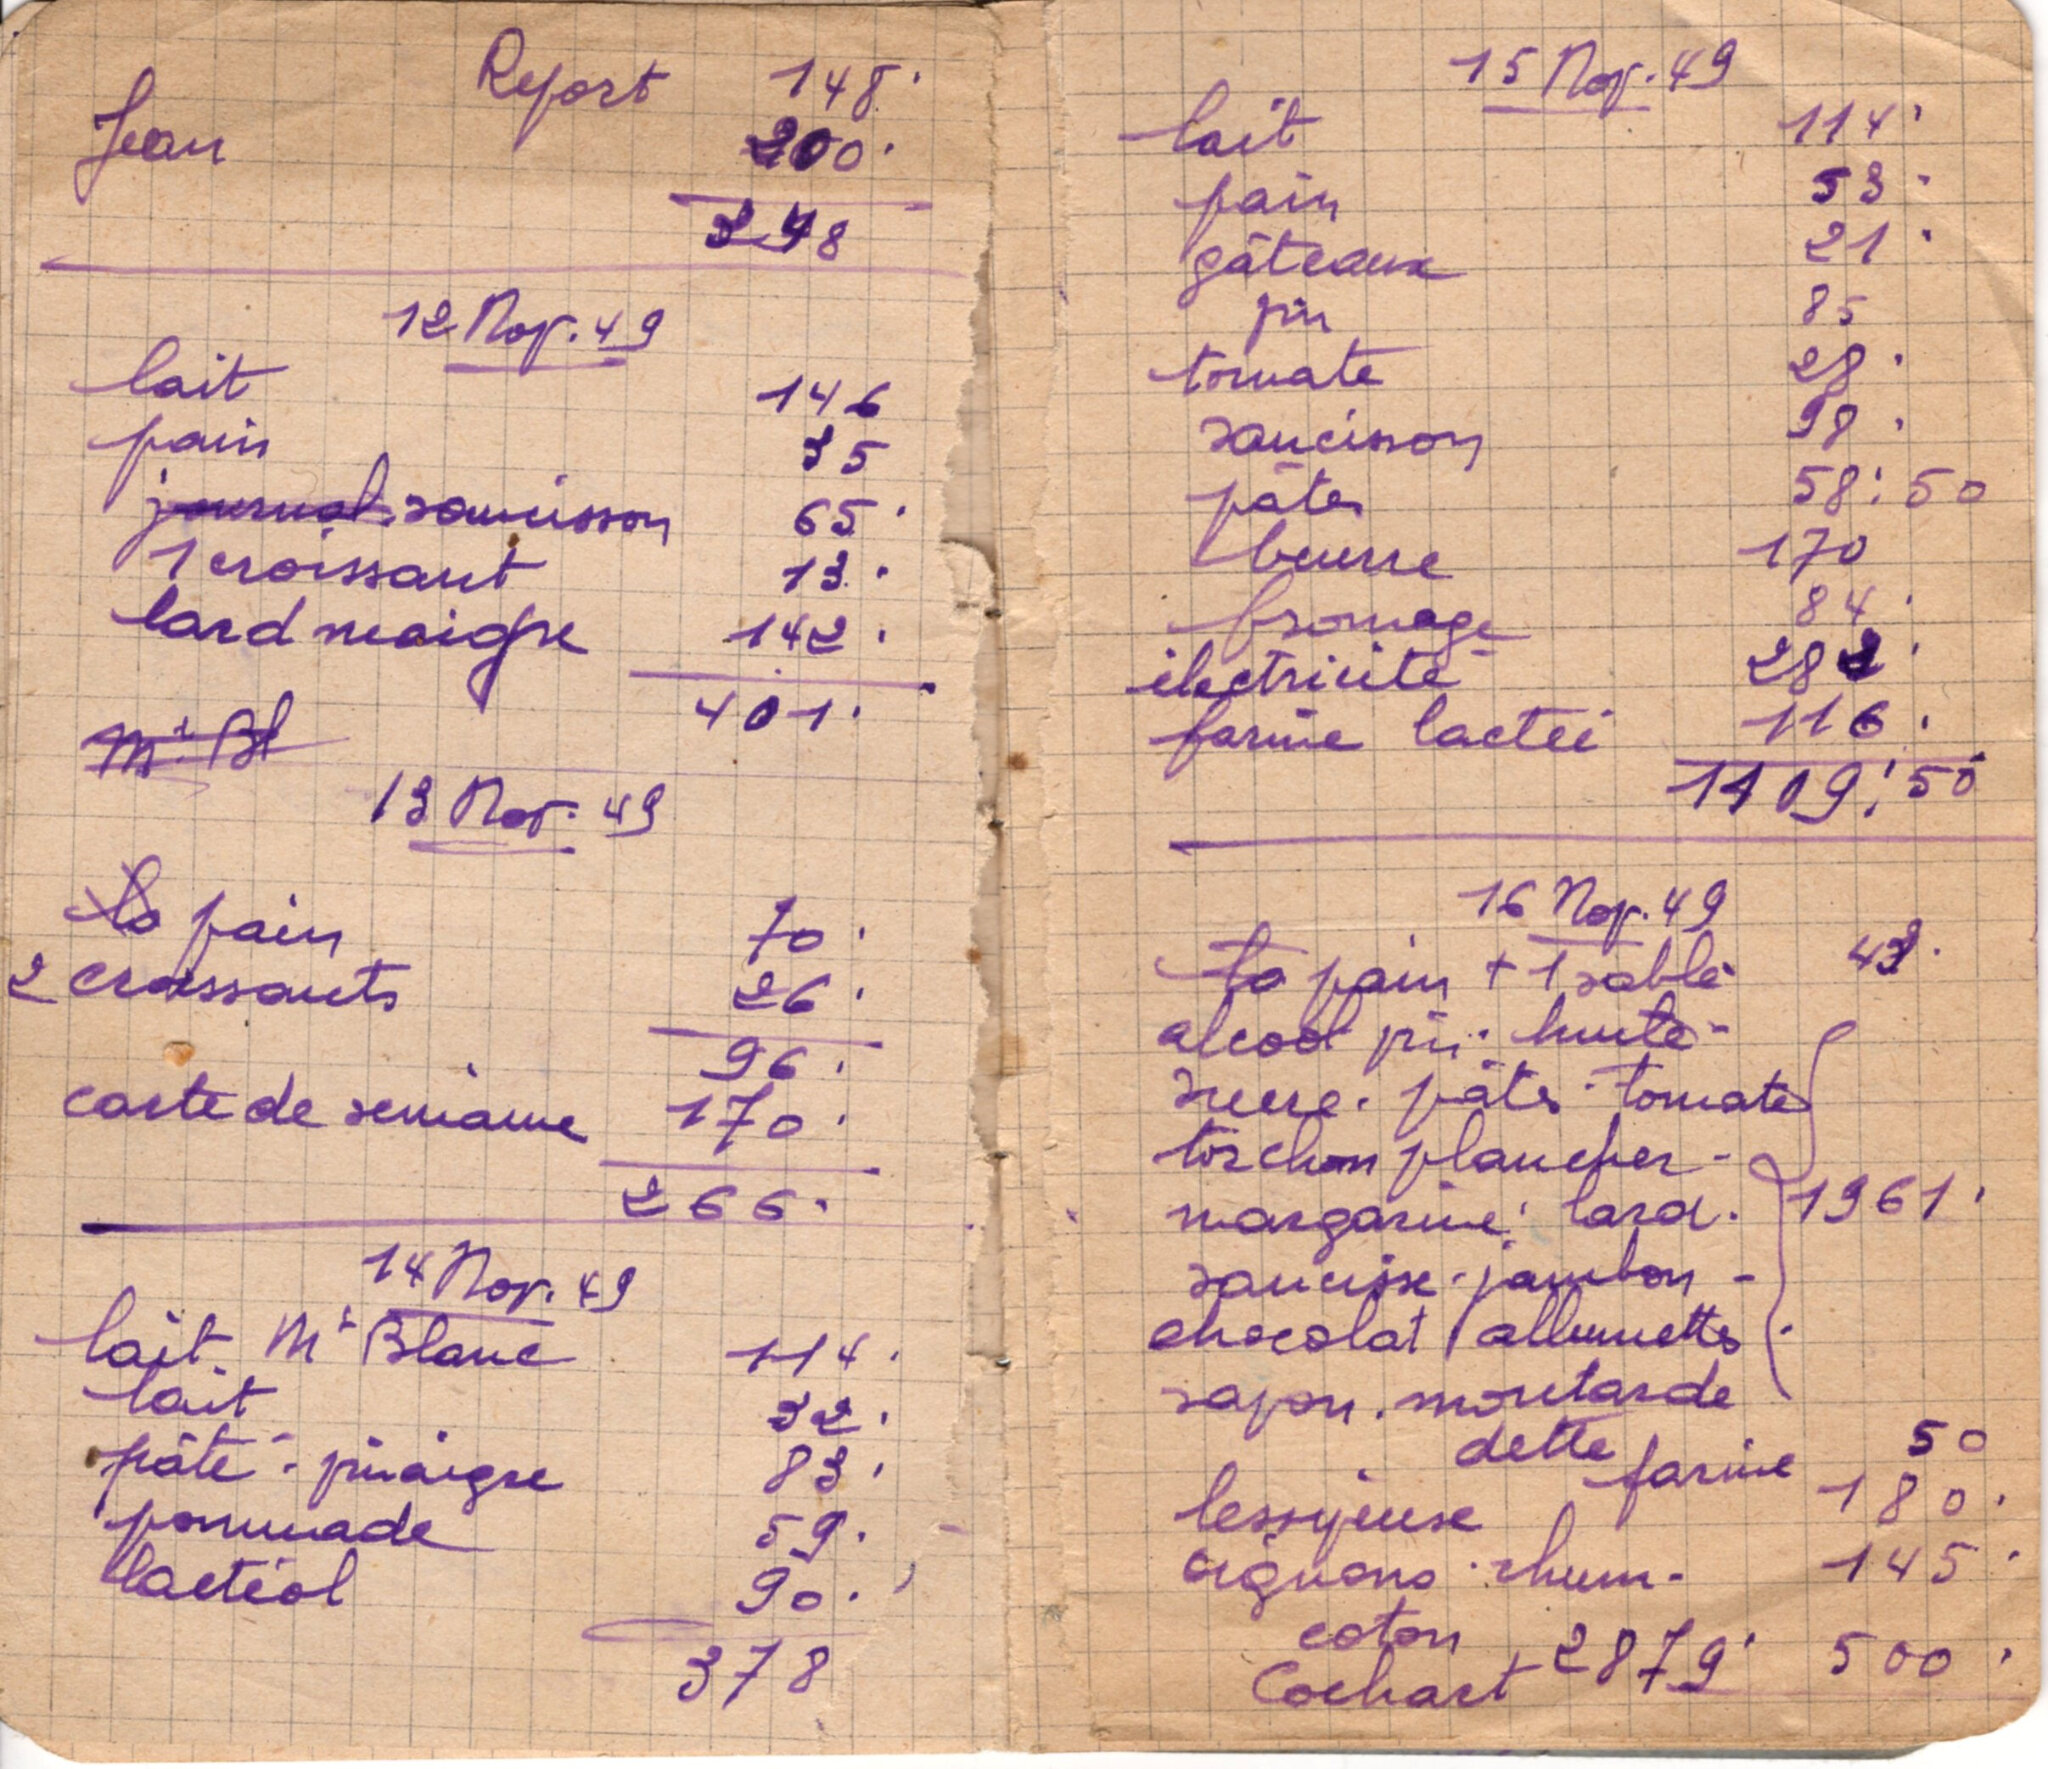 Report 148.
Jean 200.
348
12 Nov. 49
lait 146
pain 35
journal saucisson 65.
1 croissant 13.
lard maigre 142.
401.
Mt. Bl
13 Nov. 49
pain 70.
2 croissants 26.
96.
carte de semaine 170.
266.
14 Nov. 49
lait. Mt Blanc 114.
lait 32.
pâté - vinaigre 83.
pommade 59.
lactéol 90.
378
15 Nov. 49
lait 114.
pain 53.
gâteaux 21.
vin 85
tomate 28.
saucisson 98.
pâtes 58.50
beurre 170
fromage 84.
électricité 282.
farine lactée 116.
1109.50
16 Nov. 49
pain + 1 sablé 43.
alcool vin. huile -
sucre. pâtes. tomates
torchon plancher -
margarine. lard. 1961.
saucisse - jambon -
chocolat allumettes.
savon. moutarde
dette 50
farine
lessiveuse 180.
oignons. rhum. 145.
coton
Cochart 2879. 500.